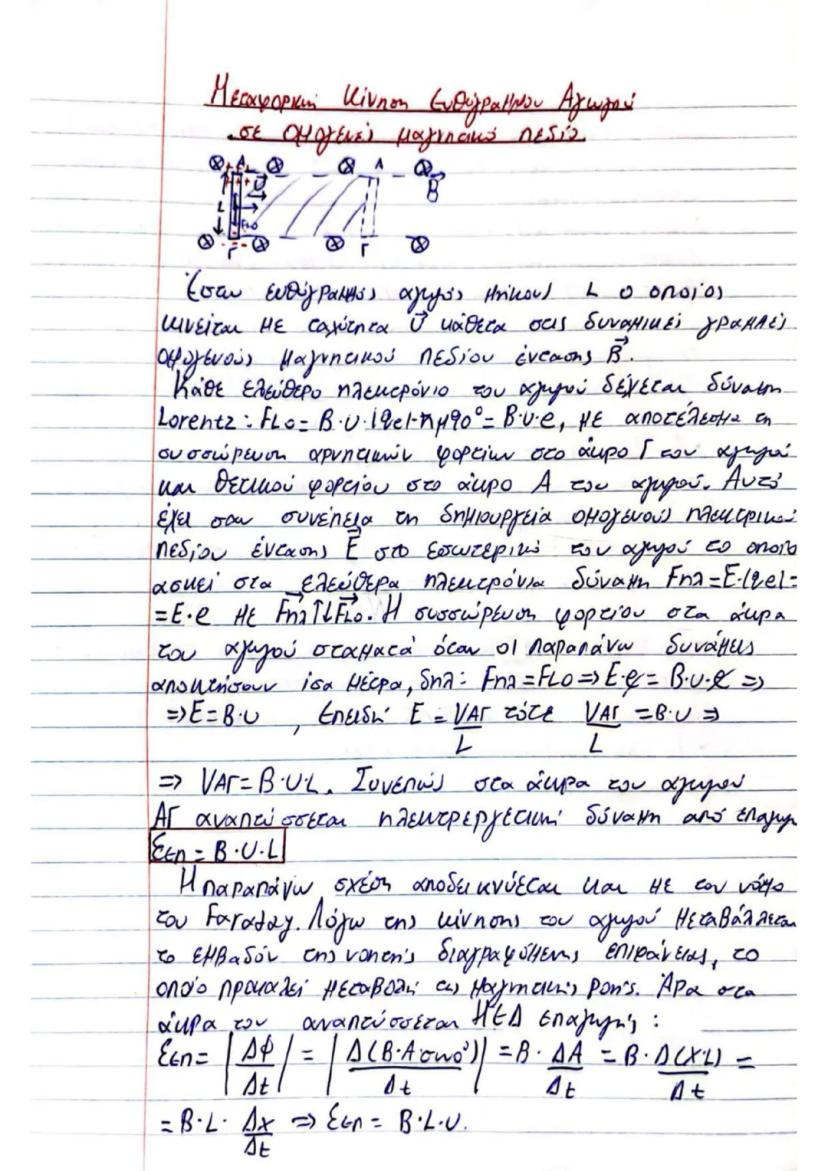 Μεταφορική Κίνηση Ευθύγραμμου Αγωγού
σε ομογενές μαγνητικό πεδίο
⊗ A ⊗ ⊗ A ⊗
L U B
FLo
⊗ Γ ⊗ ⊗ Γ ⊗
Έστω ευθύγραμμος αγωγός μήκους L ο οποίος
κινείται με ταχύτητα U⃗ κάθετα στις δυναμικές γραμμές
ομογενούς μαγνητικού πεδίου έντασης B⃗.
Κάθε ελεύθερο ηλεκτρόνιο του αγωγού δέχεται δύναμη
Lorentz: FLo = B·U·|qe|·ημ90° = B·U·e, με αποτέλεσμα τη
συσσώρευση αρνητικών φορτίων στο άκρο Γ του αγωγού
και θετικού φορτίου στο άκρο Α του αγωγού. Αυτό
έχει σαν συνέπεια τη δημιουργεία ομογενούς ηλεκτρικού
πεδίου έντασης E⃗ στο εσωτερικό του αγωγού το οποίο
ασκεί στα ελεύθερα ηλεκτρόνια δύναμη Fηλ = E·|qe| =
= E·e με F⃗ηλ↑↓F⃗Lo. Η συσσώρευση φορτίου στα άκρα
του αγωγού σταματά όταν οι παραπάνω δυνάμεις
αποκτήσουν ίσα μέτρα, δηλ: Fηλ = FLo ⇒ E·e = B·U·e ⇒
⇒ E = B·U , επειδή E = VΑΓ/L τότε VΑΓ/L = B·U ⇒
⇒ VΑΓ = B·U·L. Συνεπώς στα άκρα του αγωγού
ΑΓ αναπτύσσεται ηλεκτρεργετική δύναμη από επαγωγή
Εεπ = B·U·L
Η παραπάνω σχέση αποδεικνύεται και με τον νόμο
του Faraday. Λόγω της κίνησης του αγωγού μεταβάλλεται
το εμβαδόν της νοητής διαγραφόμενης επιφάνειας, το
οποίο προκαλεί μεταβολή της μαγνητικής ροής. Άρα στα
άκρα του αναπτύσσεται ΗΕΔ επαγωγής:
Εεπ = |ΔΦ/Δt| = |Δ(B·A συν0°)/Δt| = B·ΔA/Δt = B·Δ(X·L)/Δt =
= B·L·Δx/Δt ⇒ Εεπ = B·L·U.